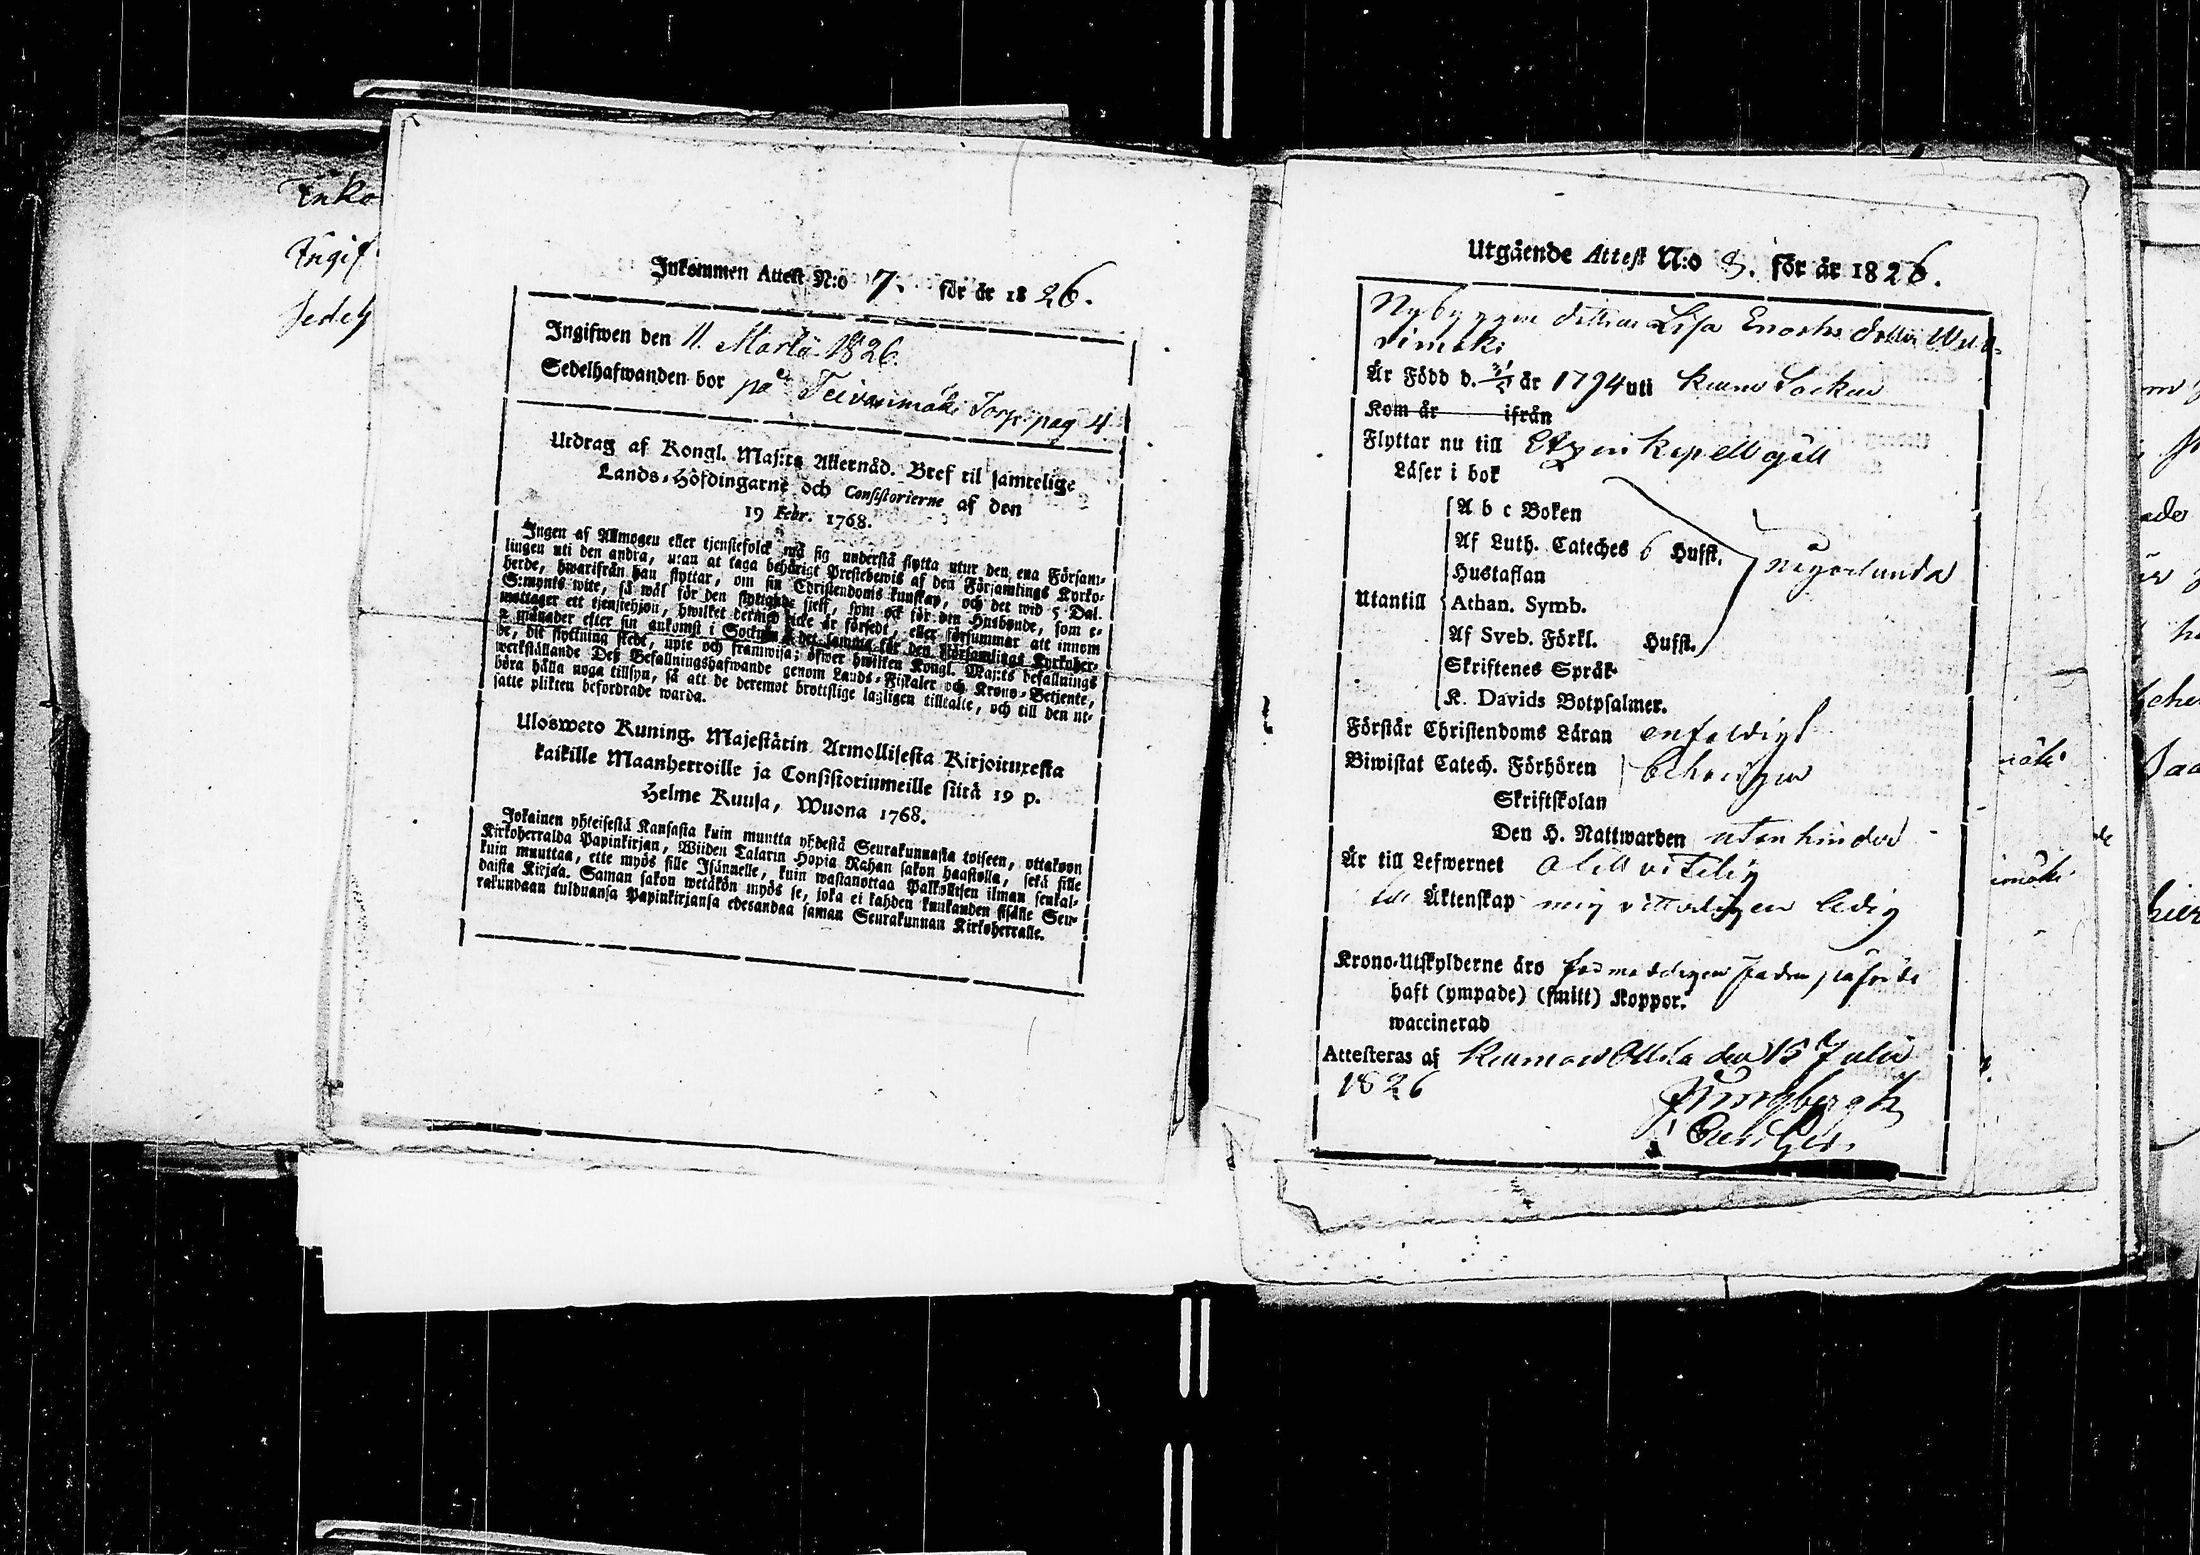 Inko
Ingif
Sedelh
Inkommen Attest N:o 7. för år 1826.
Ingifwen den 11. Martii 1826.
Sedelhafwanden bor på Teivanmäki Torp pag 4
Utdrag af Kongl. Maj:ts Allernåd. Bref til samtelige
Lands-Höfdingarne och Consistorierne af den
19 Febr. 1768.
Ingen af Allmogen eller tjenstefolck må sig understå flytta utur den ena Försam-
lingen uti den andra, utan at taga behörigt Prestebewis af den Församlings Kyrko-
herde, hwarifrån han flyttar, om sin Christendoms kunskap, och det wid 5 Dal.
S:mynts wite, så wäl för den flyttande sielf, som ock för den Husbonde, som e-
mottager ett tjenstehjon, hwilket dermed icke är försedt, eller försummar att innom
2 månader efter sin ankomst i Socknen det samma för den Församlings Kyrkoher-
de, dit flyttning skedt, upte och framwisa; öfwer hwilken Kongl. Maj:ts befallnings
werkställande Deß Befallningshafwande genom Lands-Fiskaler och Krono-Betjente,
böra hålla noga tillsyn, så att de deremot brottslige lagligen tilltalte, och till den ut-
satte plikten befordrade warda.
Ulosweto Kuning. Majestätin Armollisesta Kirjoituxesta
kaikille Maanherroille ja Consistoriumeille siitä 19 p.
Helme Kuusa, Wuona 1768.
Jokainen yhteisestä Kansasta kuin muutta yhdestä Seurakunnasta toiseen, ottakoon
Kirkoherralda Papinkirjan, Wiiden Talarin Hopia Rahan sakon haastolla, sekä sille
kuin muuttaa, ette myös sille Isännelle, kuin wastanottaa Palkollisen ilman senkal-
daista Kirjaa. Saman sakon wetäkön myös se, joka ei kahden kuukauden sisälle Seu-
rakundaan tulduansa Papinkirjansa edesandaa saman Seurakunnan Kirkoherralle.
Utgående Attest N:o 8. för år 1826.
Nybyggare dottren Lisa Enochs dotter
rimäki
Är Född d. 31/5 år 1794 uti Keuru Socken
Kom år ifrån
Flyttar nu till Etzeri Kapellgäll
Läser i bok
A b c Boken
Af Luth. Cateches 6 Hufst.
Hustaflan
någorlunda
Utantill Athan. Symb.
Af Sveb. Förkl. Hufst.
Skriftenes Språk
K. Davids Botpsalmer.
Förstår Christendoms Läran enfaldigt
Biwistat Catech. Förhören behörigen
Skriftskolan
Den H. Nattwarden utan hinder
Är till Lefwernet
till Äktenskap mig vitterligen ledig
Krono-Utskylderne äro påförde
haft (ympade) (smitt) Koppor.
waccinerad
Attesteras af den 15 Julii
1826
näki
imäki